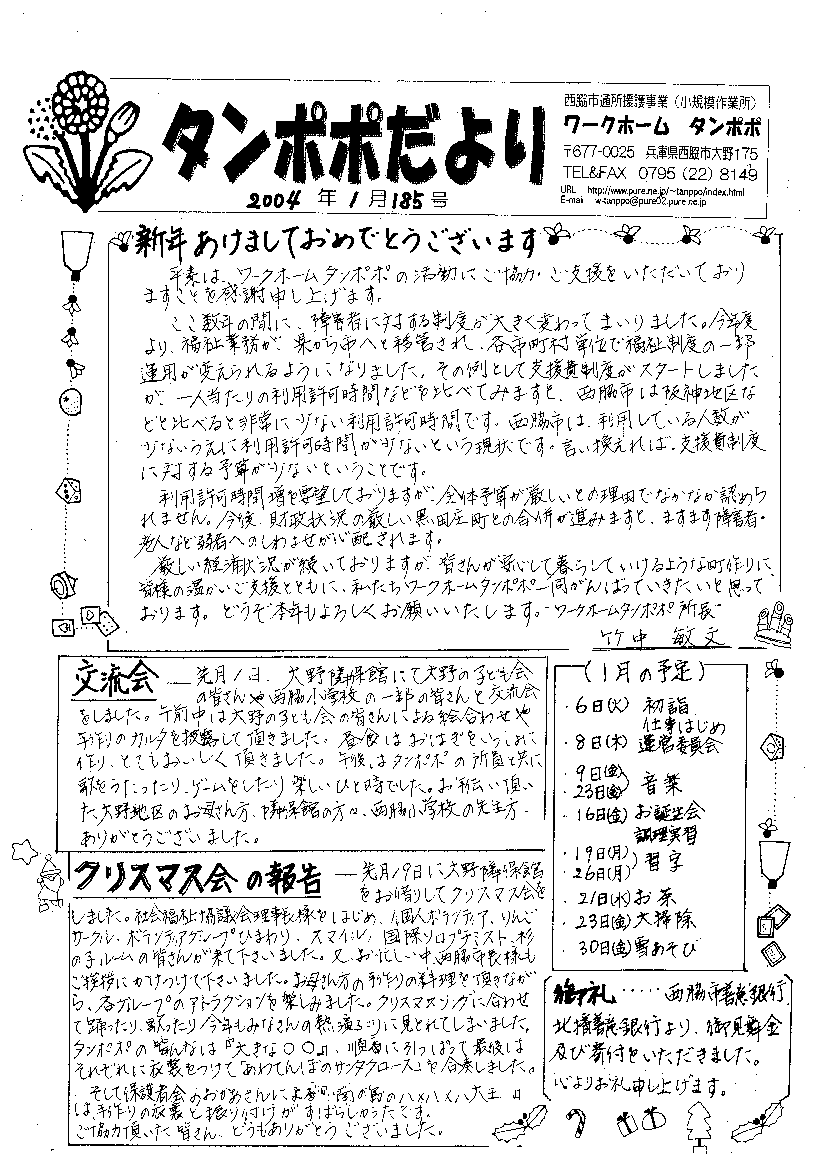 タンポポだより
2004年1月185号
西脇市通所援護事業（小規模作業所）
ワークホーム タンポポ
〒677-0025 兵庫県西脇市大野175
TEL&FAX 0795（22）8149
URL http://www.pure.ne.jp/~tanppo/index.html
E-mail w-tanppo@pure02.pure.ne.jp
新年あけましておめでとうございます
平素は、ワークホームタンポポの活動にご協力・ご支援をいただいており
ますことを感謝申し上げます。
ここ数年の間に、障害者に対する制度が大きく変わってまいりました。今年度
より、福祉業務が、県から市へと移管され、各市町村単位で福祉制度の一部
運用が変えられるようになりました。その例として支援費制度がスタートしました
が、一人当たりの利用許可時間などを比べてみますと、西脇市は阪神地区な
どと比べると非常に少ない利用許可時間です。西脇市は、利用している人数が
少ないうえに利用許可時間が少ないという現状です。言い換えれば、支援費制度
に対する予算が少ないということです。
利用許可時間増を要望しておりますが、全体予算が厳しいとの理由でなかなか認めら
れません。今後、財政状況の厳しい黒田庄町との合併が進みますと、ますます障害者・
老人など弱者へのしわよせが心配されます。
厳しい経済状況が続いておりますが、皆さんが安心して暮らしていけるような町作りに、
皆様の温かいご支援とともに、私たちワークホームタンポポ一同がんばっていきたいと思って
おります。どうぞ本年もよろしくお願いいたします。 ワークホームタンポポ所長
竹中 敏文
交流会
先月1日、大野隣保館にて大野の子ども会
の皆さんや西脇小学校の一部の皆さんと交流会
をしました。午前中は大野の子ども会の皆さんによる絵合わせや
手作りのカルタを披露して頂きました。昼食はおはぎをいっしょに
作り、とてもおいしく頂きました。午後はタンポポの所員と共に
歌をうたったり、ゲームをしたり楽しいひと時でした。お手伝い頂い
た大野地区のお母さん方、隣保館の方々、西脇小学校の先生方、
ありがとうございました。
クリスマス会の報告
先月19日に大野隣保館
をお借りしてクリスマス会を
しました。社会福祉協議会理事長様をはじめ、個人ボランティア、りんご
サークル、ボランティアグループひまわり、スマイル、国際ソロプチミスト、杉
の子ルームの皆さんが来て下さいました。又、お忙しい中西脇市長様も
ご挨拶にかけつけて下さいました。お母さん方の手作りの料理を頂きなが
ら、各グループのアトラクションを楽しみました。クリスマスソングに合わせ
て踊ったり、歌ったり今年もみなさんの熱演ぶりに見とれてしまいました。
タンポポの皆んなは『大きな○○』、順番に引っぱって最後は
それぞれに衣装をつけて「あわてんぼのサンタクロース」を合奏しました。
そして保護者会のおかあさんによる南の島のハメハメハ大王
は、手作りの衣装と振り付けがすばらしかったです。
ご協力頂いた皆さん、どうもありがとうございました。
（1月の予定）
・6日(火) 初詣
仕事はじめ
・8日(木) 運営委員会
・9日(金)
・23日(金) 音楽
・16日(金) お誕生会
調理実習
・19日(月)
・26日(月) 習字
・21日(水) お茶
・23日(金) 大掃除
・30日(金) 雪あそび
御礼……西脇市善意銀行、
北播善意銀行より、御見舞金
及び寄付をいただきました。
心よりお礼申し上げます。